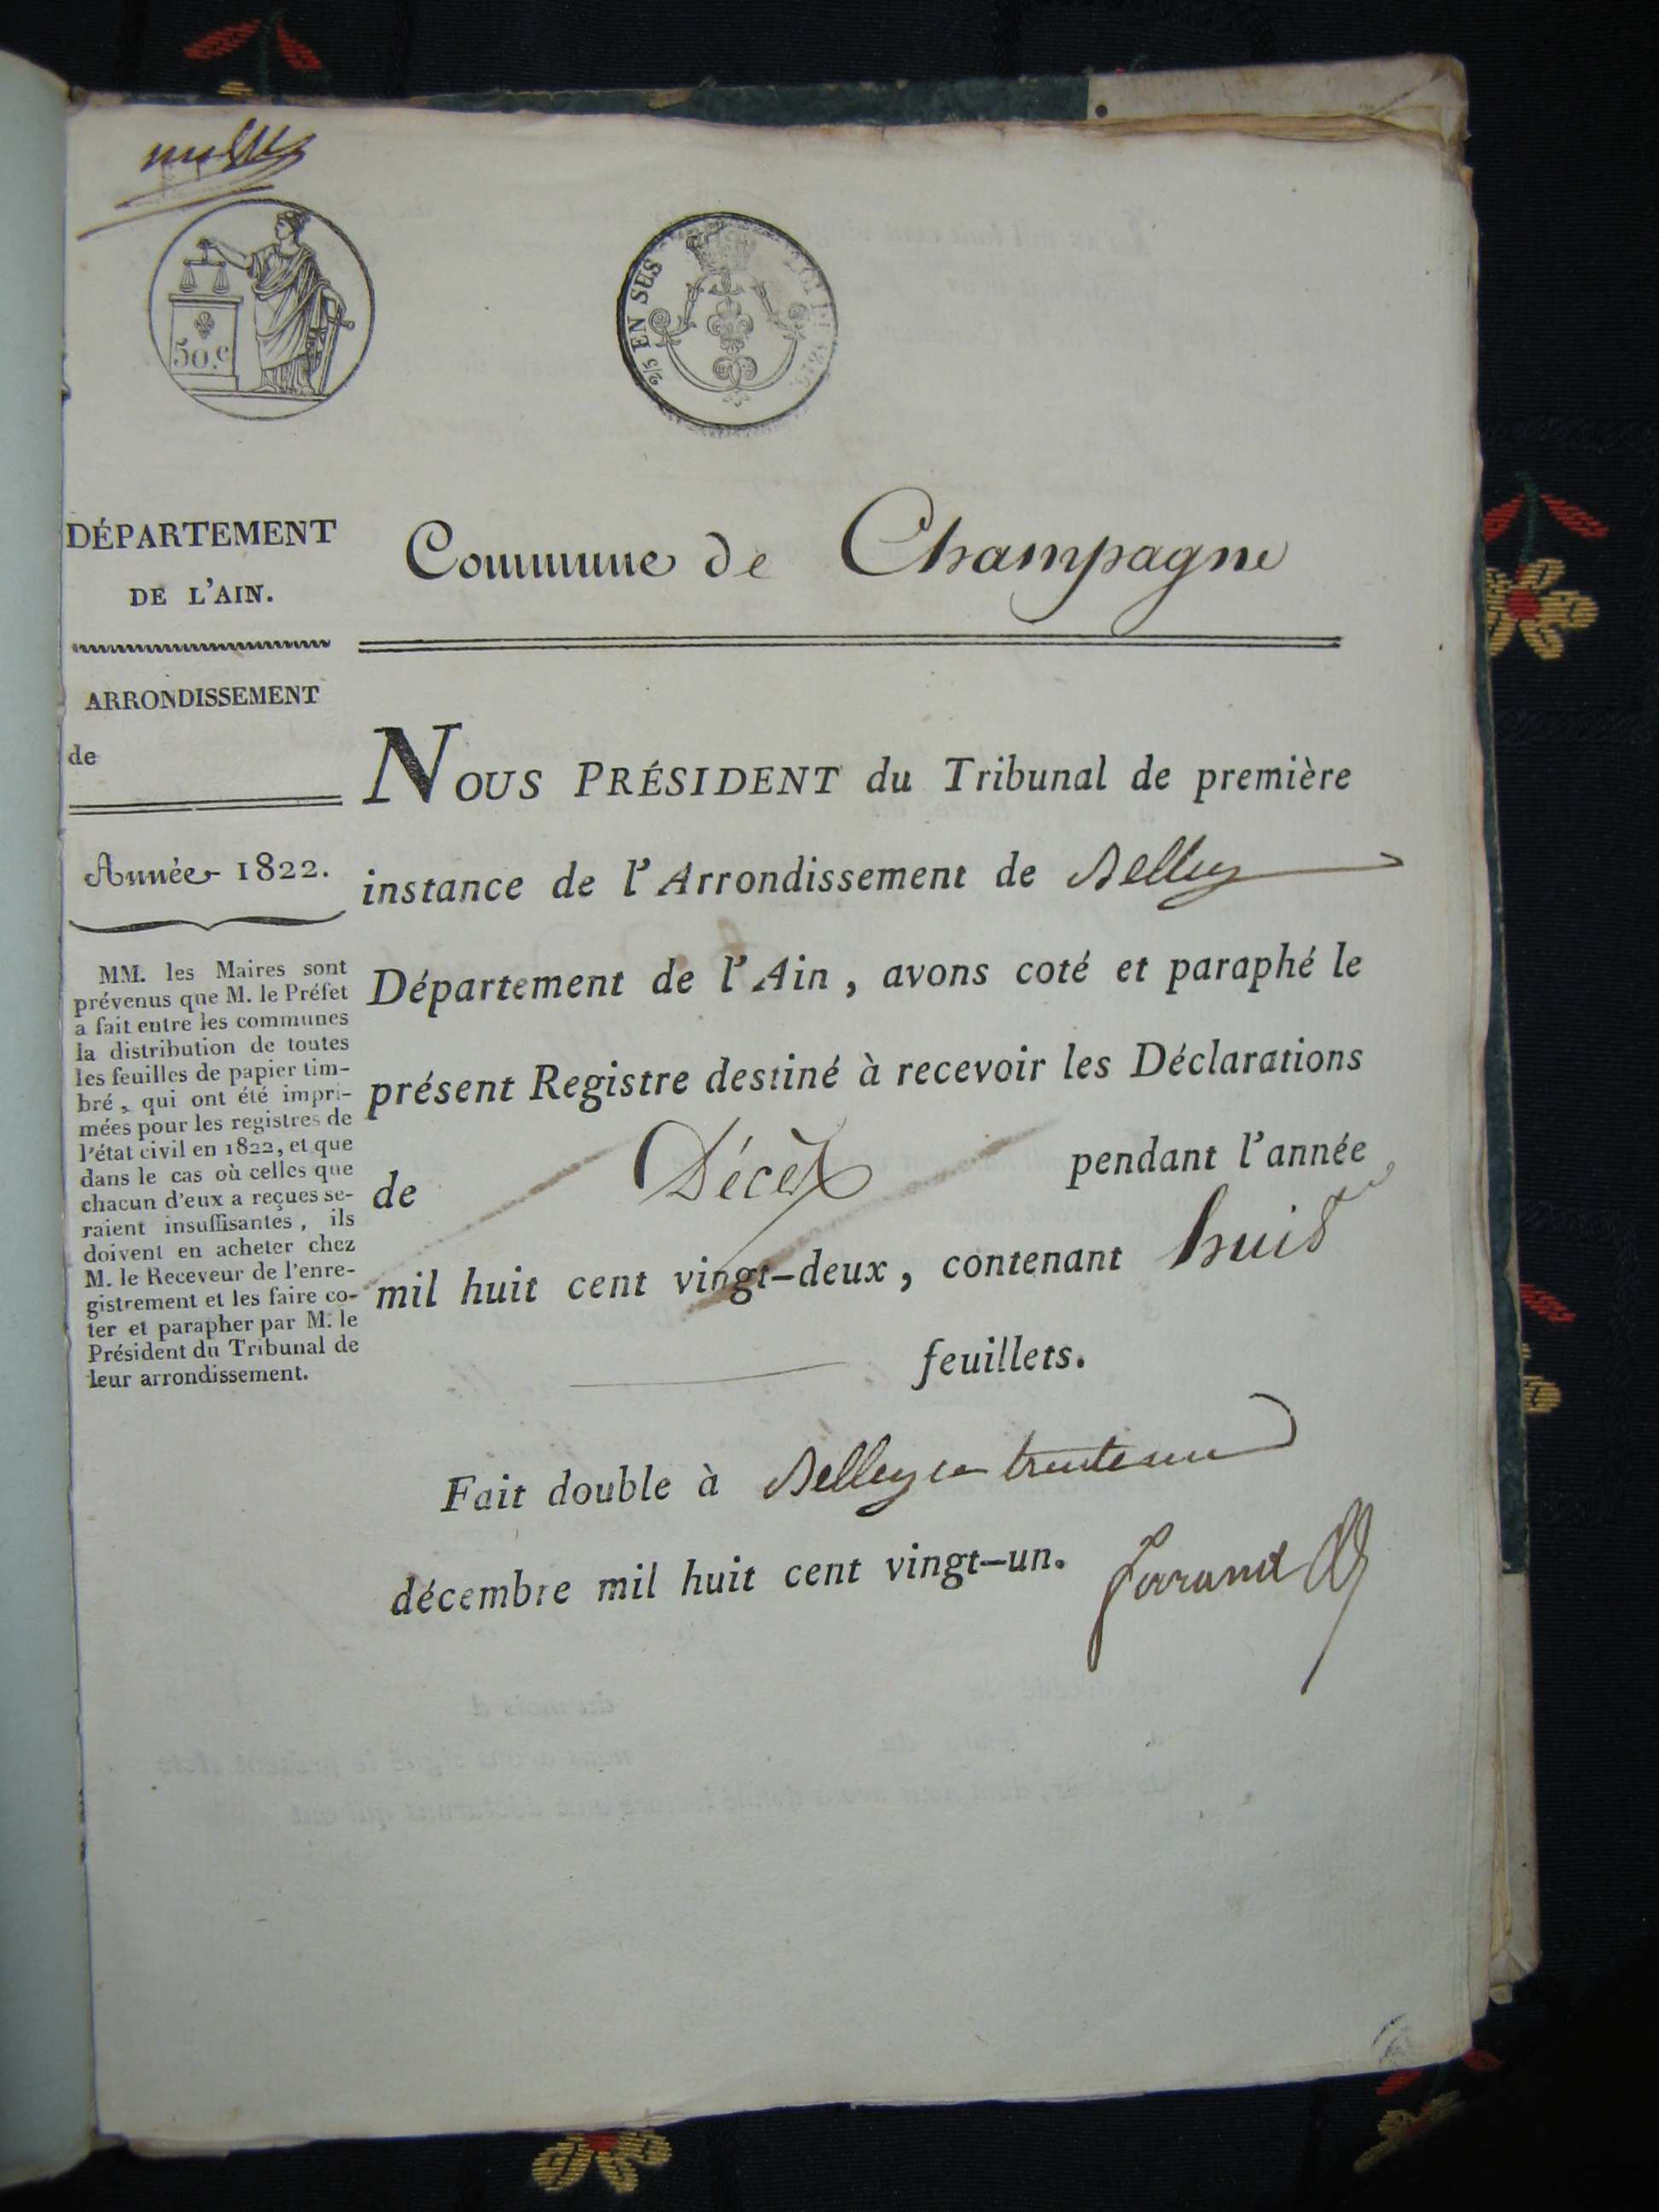 50.c
2/5 EN SUS
DÉPARTEMENT
DE L'AIN.
Commune de Champagne
ARRONDISSEMENT
de
Année 1822.
MM. les Maires sont
prévenus que M. le Préfet
a fait entre les communes
la distribution de toutes
les feuilles de papier tim-
bré, qui ont été impri-
mées pour les registres de
l'état civil en 1822, et que
dans le cas où celles que
chacun d'eux a reçues se-
raient insuffisantes, ils
doivent en acheter chez
M. le Receveur de l'enre-
gistrement et les faire co-
ter et parapher par M. le
Président du Tribunal de
leur arrondissement.
NOUS PRÉSIDENT du Tribunal de première
instance de l'Arrondissement de Belley
Département de l'Ain, avons coté et paraphé le
présent Registre destiné à recevoir les Déclarations
de Décès pendant l'année
mil huit cent vingt-deux, contenant huit
feuillets.
Fait double à Belley ce trente un
décembre mil huit cent vingt-un.